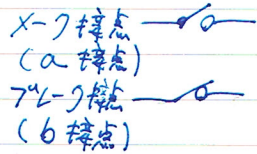 メーク接点
(a接点)
ブレーク接点
(b接点)